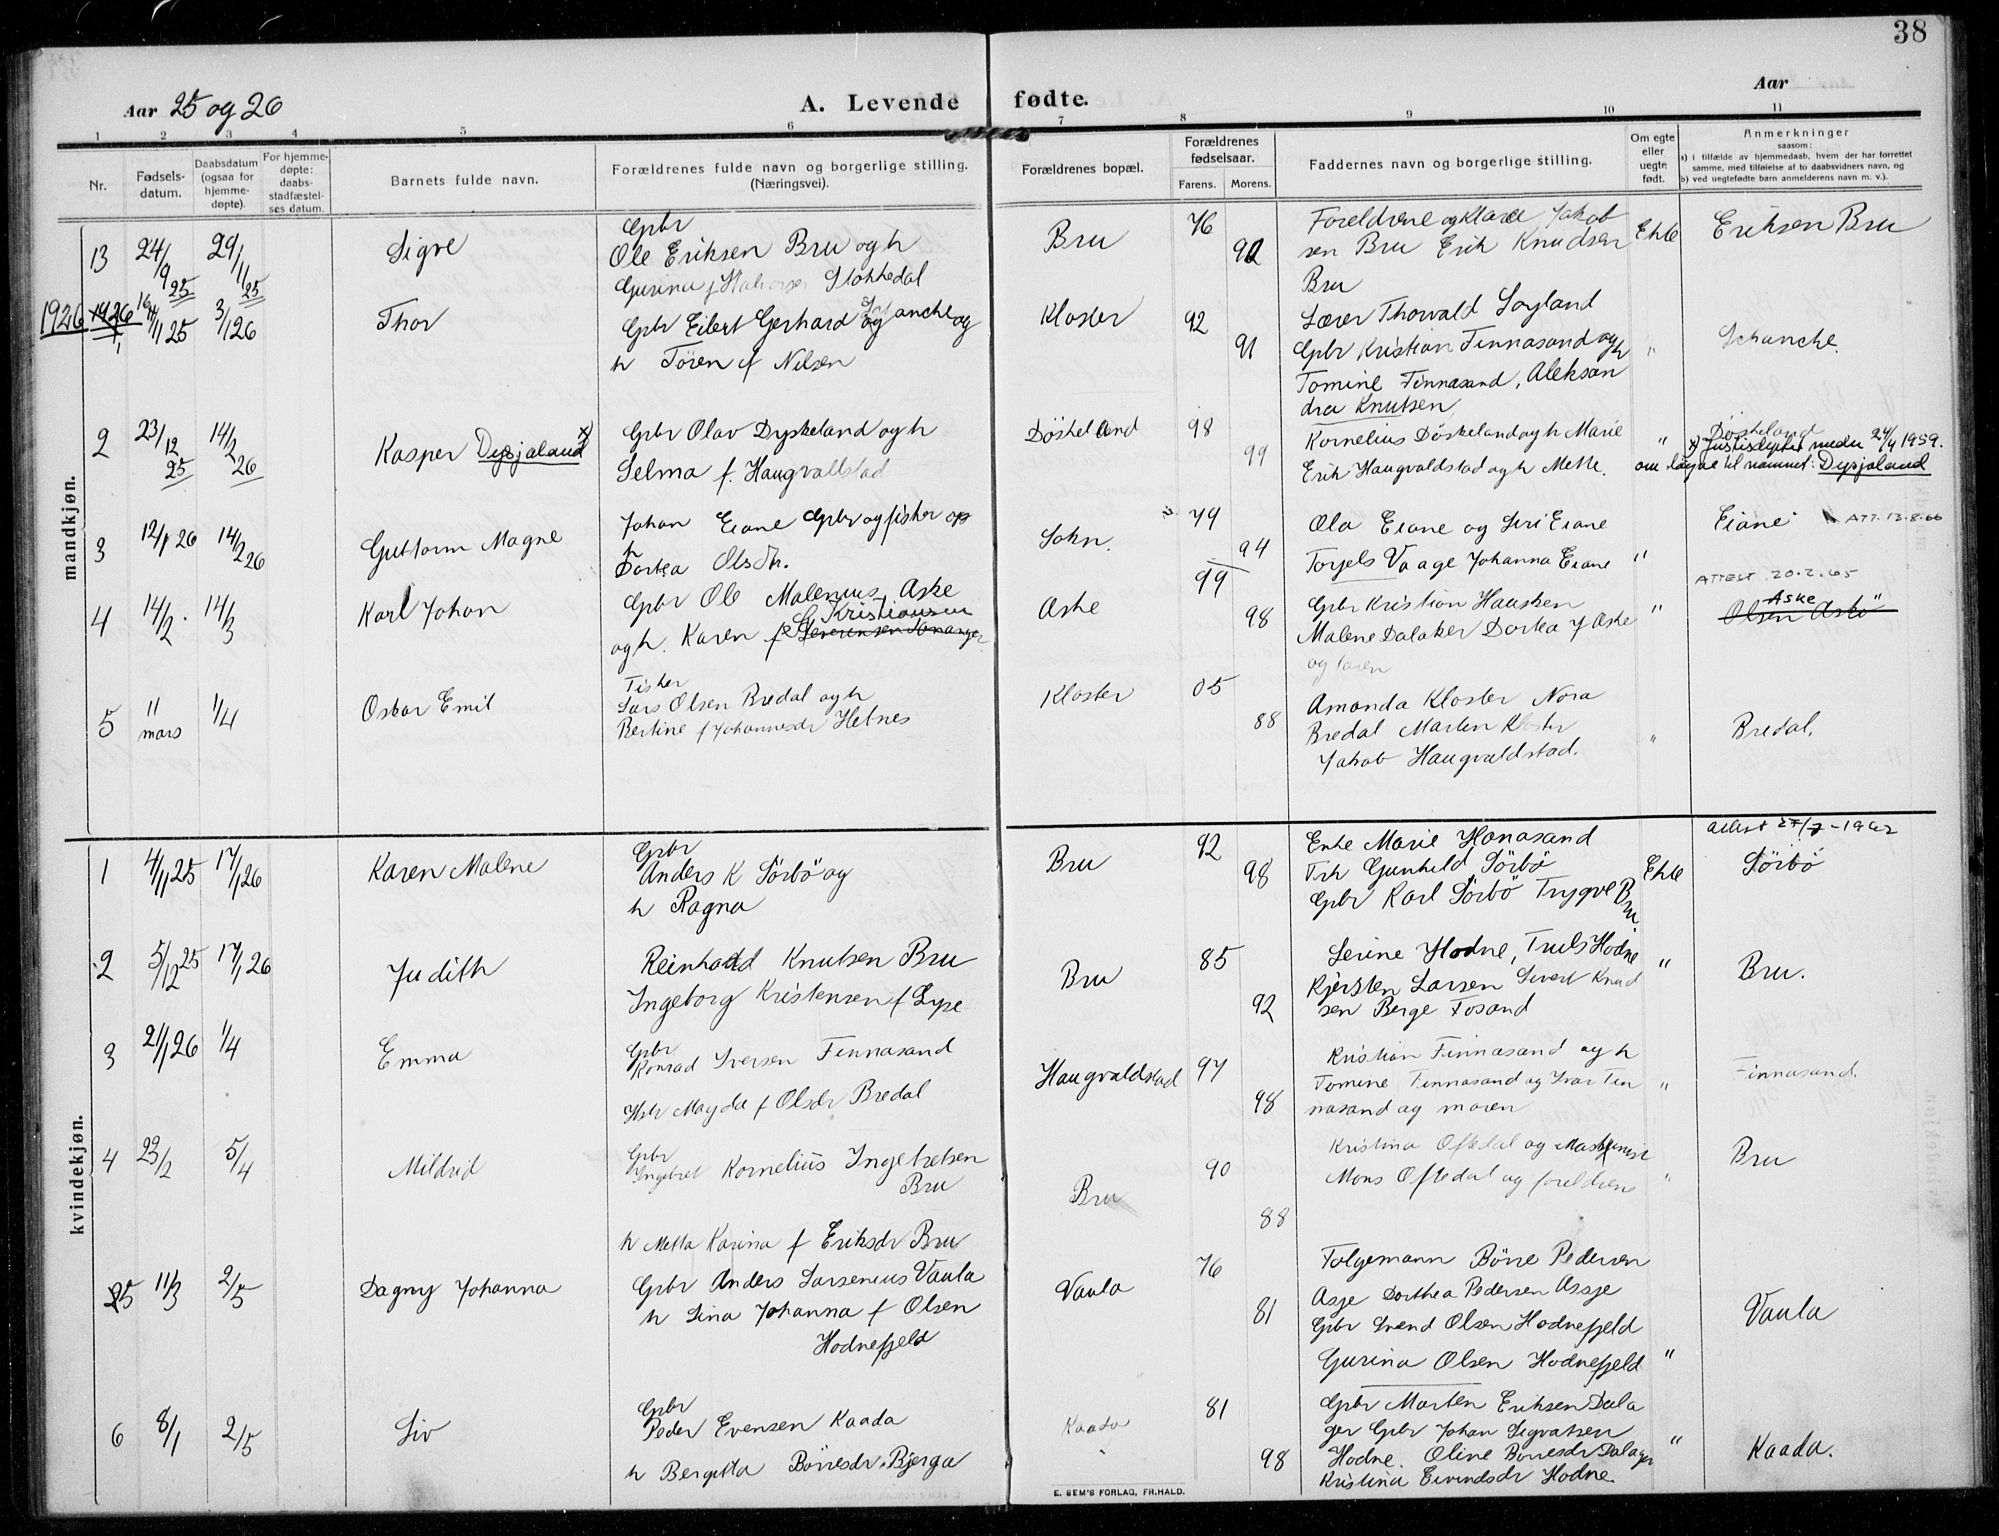 38
Aar 25 og 26
A. Levende fødte.
Aar
1 2 3 4 5 6 7 8 9 10 11
Nr.
Fødsels-
datum.
Daabsdatum
(ogsaa for
hjemme-
døpte).
For hjemme-
døpte:
daabs-
stadfæstel-
ses datum.
Barnets fulde navn.
Forældrenes fulde navn og borgerlige stilling.
(Næringsvei).
Forældrenes bopæl.
Forældrenes
fødselsaar.
Farens. Morens.
Faddernes navn og borgerlige stilling.
Om egte
eller
uegte
født.
Anmerkninger
saasom:
a) i tilfælde av hjemmedaab, hvem der har forrettet
samme, med tilføielse af to daabsvidners navn, og
b) ved uegtefødte barn anmelderens navn m. v.).
mandkjøn.
13 24/9 25 29/11 25 Sigve
Gpbr
Ole Eriksen Bru og h
Gurina f Halvorsen Stokkedal
Bru 76 92
Foreldrene og Klara Jakob
sen Bru Erik Knudsen
Bru
Ekte Eriksen Bru
1926 1926 1, 16/11 25 3/1 26 Thor
Gpbr Eilert Gerhard Schanche og
h Tören f Nilsen
Kloster 92 91
Lærer Thorvald Soyland
Gpbr Kristian Finnasand og h
Tomine Finnasand, Aleksan
dra Knutsen
" Schanche.
2 23/12 25 14/2 26 Kasper Dysjaland x)
Gpbr Olav Dyskeland og h
Selma f. Haugvallstad
Döskeland 98 99
Kornelius Döskeland og h Marie
Erik Haugvaldstad og h Mette.
" Döskeland
x) Justisdeptet meder 24/4 1959.
om løyve til namnet: Dysjaland
3 12/1 26 14/2 26 Guttorm Magne
Johan Eiane Gpbr og fisker og
h
Dortea Olsdtr.
Sokn. 79 94
Ola Eiane og Siri Eiane
Torjels Vaage Johanna Eiane
" Eiane ATT. 13.8.66
4 14/2. 14/3 Karl Johan
Gpbr Ole Malenius Aske
og h. Karen f Kristiansen
Aske 99 98
Gpbr Kristian Hausken
Malene Dalaker Dortea J Aske
og faren
" ATTEST 20.2.65
Aske
Olsen Askö
5 11 mars 1/4 Oskar Emil
Fisker
Lars Olsen Bredal og h
Bertine f Johannesdr Hetnes
Kloster 05 88
Amanda Kloster Nora
Bredal Marten Kloster
Jakob Haugvaldstad.
" Bredal.
kvindekjøn.
1 4/11 25 17/1 26 Karen Malene
Gpbr
Anders K Sörbö og
h Ragna
Bru 92 98
Enke Marie Hanasand
Frk Gunhild Sörbö
Gpbr Karl Sörbö Trygve Bru
Ekte attest 27/7-1962
Sörbö
2 5/12 25 17/1 26 Judith
Reinhard Knutsen Bru
Ingeborg Kristensen f Lyse
Bru 85 92
Serine Hodne, Truls Hodne
Kjersten Larsen Sivert Knud
sen Berge Fosand
" Bru.
3 21/1 26 1/4 Emma
Gpbr
Konrad Iversen Finnasand
Hstr Magda f Olsdr Bredal
Haugvaldstad 97 98
Kristian Finnasand og h
Tomine Finnasand og Ivar Fin
nasand og moren
" Finnasand.
4 23/2 5/4 Mildrid
Gpbr
Ingebret Kornelius Ingebretsen
Bru
h Metta Karina f Eriksdr Bru
Bru 90 88
Kristina Oftedal og Maskinist
Mons Oftedal og foreldrene
" Bru
5 11/3 2/5 Dagny Johanna
Gpbr Anders Larsenius Vaula
h Lina Johanna f Olsen
Hodnefjeld
Vaula 76 81
Folgemann Börre Pedersen
Asje Dorthea Pedersen Assje
Gpbr Svend Olsen Hodnefjeld
Gurina Olsen Hodnefjeld
" Vaula
6 8/1 2/5 Liv
Gpbr
Peder Evensen Kaada
h Bergitta Börresdr. Bjerga
Kaada 81 98
Gpbr Marten Eriksen Dala
ger Gpbr Johan Sigvatsen
Hodne. Oline Börresdr Dalager
Kristina Eivindsdr Hodne.
" Kaada.
E. SEM'S FORLAG, FR.HALD.